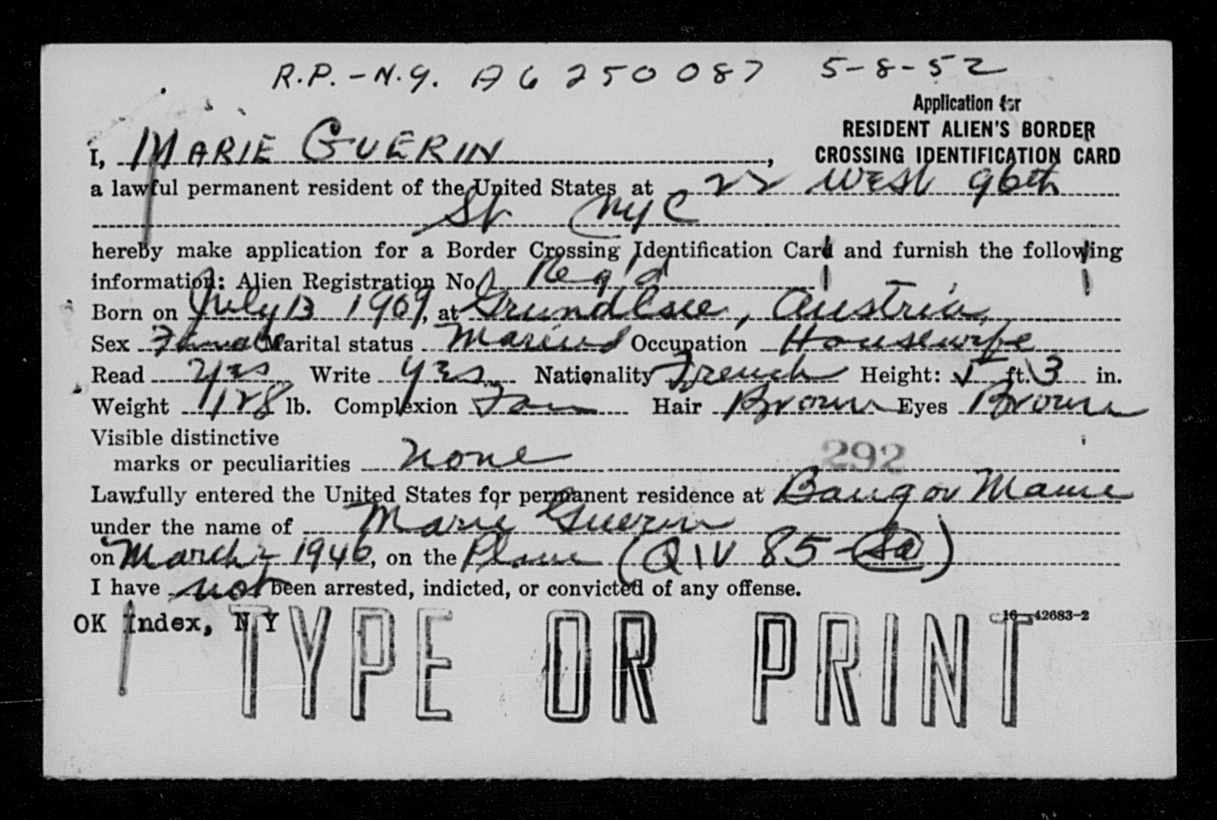 R.P. - N.Y. A6 250 087 5-8-52
Application for
RESIDENT ALIEN'S BORDER
CROSSING IDENTIFICATION CARD
I, MARIE GUERIN,
a lawful permanent resident of the United States at 22 West 96th
St. NYC
hereby make application for a Border Crossing Identification Card and furnish the following
information: Alien Registration No. Reg'd
Born on July 13 1909, at Grundlsee, Austria
Sex Female Marital status Married Occupation Housewife
Read Yes Write Yes Nationality French Height: 5 ft. 3 in.
Weight 128 lb. Complexion Hair Brown Eyes Brown
Visible distinctive
marks or peculiarities None
292
Lawfully entered the United States for permanent residence at Bangor Maine
under the name of Marie Guerin
on March - 1946, on the Plane (QIV 85
I have not been arrested, indicted, or convicted of any offense.
OK Index, N Y
16-42683-2
TYPE OR PRINT